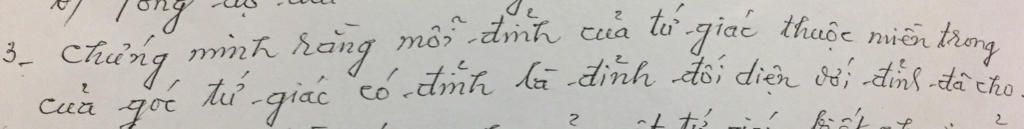 3_ Chứng minh rằng mỗi đỉnh của tứ giác thuộc miền trong
của góc tứ giác có đỉnh là đỉnh đối diện với đỉnh đã cho.